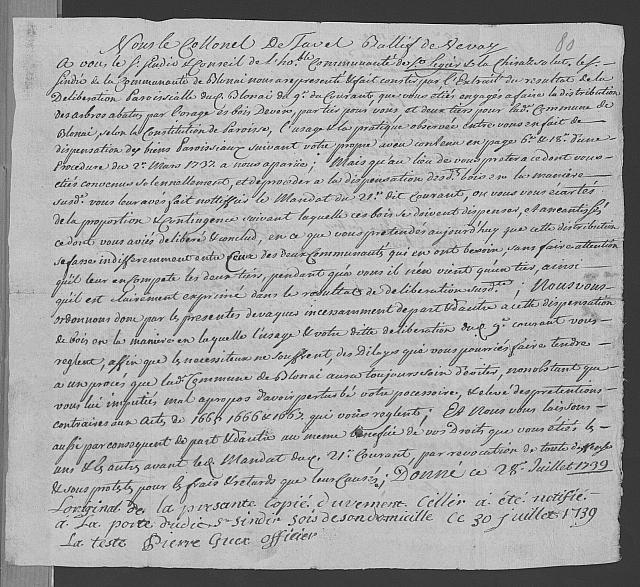 80
Nous le Collonel De Tavel Ballif de Vevay
A vous le Sr. Sindic & Conseil de l'hoble. Communauté de St. Legier & la Chiesaz salut, le Sr.
Sindic de la Communauté de Blonai nous a represente & fait conster par l'Extrait du resultat de la
Deliberation Paroissialle du de Blonai du 9e. du Courant que vous etiés engagés a faire la distribution
des arbres abatus par l'orage és bois Devens, par tiers pour vous et deux tiers pour lade. Commune de
Blonai, selon la Constitution de Paroisse, l'usage & la pratique observée entre vous en fait de
dispensation des biens Paroissiaux suivant votre propre aveu contenu en page 6e. & 18e. d'une
Procedure du 2e. Mars 1737. a nous aparüe; Mais qu'au lieu de vous preter a ce dont vous
etiés convenus solennellement, et de proceder a la dispensation desds. bois en la maniere
susde. vous leur avés fait notiffier le Mandat du 21e. dit Courant, ou vous vous écartés
de la proportion & Contingence suivant laquelle ces bois se doivent dispenser, et aneantissés
ce dont vous aviés deliberé & conclud, en ce que vous pretendés aujourdhuy que cette distribution
se fasse indifferemment entre Ceux des deux Communautés qui en ont besoin sans faire attention
qu'il leur en compete les deux tiers, pendant qu'a vous il n'en vient qu'un tiers, ainsi
qu'il est clairement exprimé dans le resultat de deliberation susde.; Nous vous
ordonnons donc par les presentes de vaquer incessamment de part & d'autre a cette dispensation
de bois en la maniere en laquelle l'usage & votre ditte deliberation du 9e. courant vous
reglent, affin que les necessiteux ne souffrent des dilays que vous pourriés faire tendre
a un procés que lade. Commune de Blonai aura toujours soin d'eviter, nonobstant que
vous lui imputiés mal a propos d'avoir perturbé votre possessoire, & elevé des pretentions
contraires aux Actes de 1665 1666 & 1667. qui vous reglent; Et Nous vous laissons
aussi par consequent de part & d'autre au meme benefice de vos Droits que vous etiés les
uns & les autres avant led. Mandat du 21e. Courant, par revocation de toute
& sous protests pour les frais & retards que leur Causés; Donné ce 28e. Juillet 1739
L'original de la presante copié duvement Célléé a été notifié
a la porte dudit Sr. Sindic sois de son domicille Ce 30 juillet 1739
La teste Pierre Guex officier